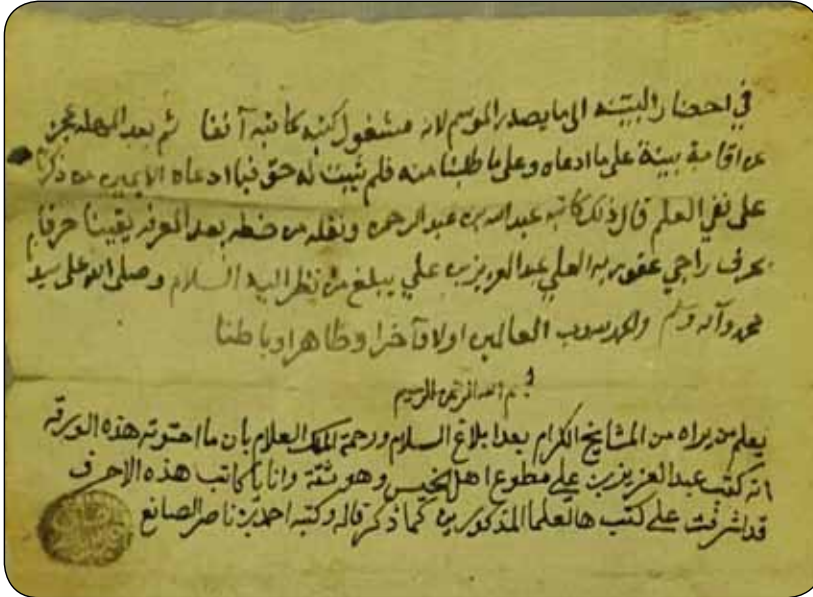 في احضار البينه الى ما يصدر الموسم لانه مشغول كتبه كاتبه آنفا ثم بعد المهله عجز
عن اقامة بينة على ما ادعاه وعلى ما طلبنا منه فلم يثبت له حق فيما ادعاه الا يمين من ذكرنا
على نفي العلم قال ذلك كاتبه عبد الله بن عبد الرحمن ونقله من خطه بعد المعرفه يقينا حرفا بم
بحرف راجي عفو ربه العلي عبد العزيز بن علي يبلغ من نظر اليه السلام وصلى الله على سيد
محمد وآله وسلم والحمد لله رب العالمين اولا وآخرا وظاهرا وباطنا
بسم الله الرحمن الرحيم
يعلم من يراه من المشايخ الكرام بعد ابلاغ السلام ورحمة الملك العلام بان ما احتوته هذه الورقه
انه كتب عبد العزيز بن علي مطوع اهل الخيس وهو ثقة وانا يا كاتب هذه الاحرف
قد اشرفت على كتب هالعلما المذكورين كما ذكر قاله وكتبه احمد بن ناصر الصانع